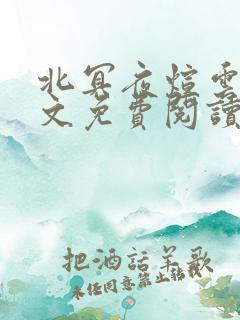 北冥夜煊雲
文免費閱讀
把酒話羊歌
未经同意禁止转载